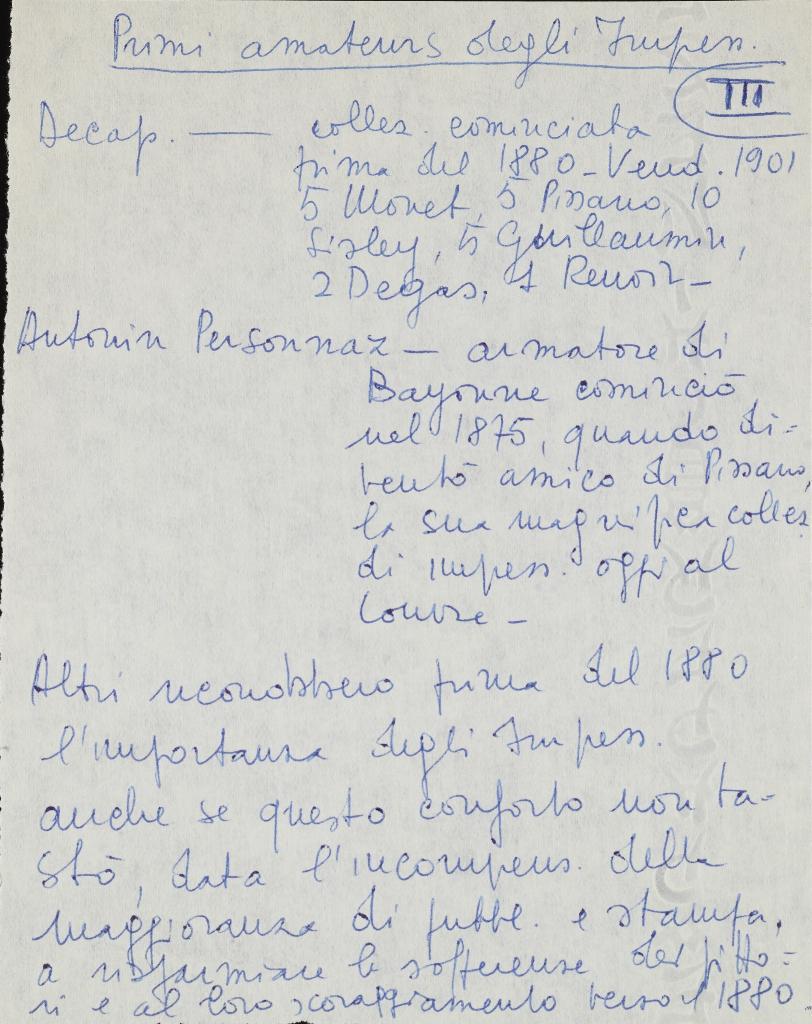 Primi amateurs degli Impess.
III
Decap. — collez. cominciata
prima del 1880 - Vend. 1901
5 Monet, 5 Pissarro, 10
Sisley, 5 Guillaumin,
2 Degas, 1 Renoir -
Antonin Personnaz - armatore di
Bayonne cominciò
nel 1875, quando di=
ventò amico di Pissarro,
la sua magnifica collez.
di impess. oggi al
Louvre -
Altri riconobbero prima del 1880
l'importanza degli Impess.
anche se questo conforto non ba-
stò, data l'incompens. della
maggioranza di pubbl. e stampa,
a risparmiare le sofferenze dei pitto=
ri e al loro scoraggiamento verso il 1880.